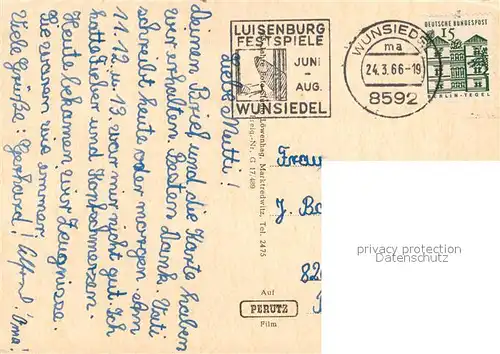 LUISENBURG
FESTSPIELE
JUNI
-
AUG.
WUNSIEDEL
WUNSIEDEL
ma
24.3.66-19
8592
DEUTSCHE BUNDESPOST
15
BERLIN-TEGEL
Liebe Mutti!
Deinen Brief und die Karte haben
wir erhalten. Besten Dank. Vati
schreibt heute oder morgen. Am
11. 12. u. 13. war mir nicht gut. Ich
hatte Fieber und Kopfschmerzen.
Heute bekamen wir Zeugnisse.
Sie waren wie immer.
Viele Grüße: Gerhard! Alfred! Oma!
Löwenhag, Marktredwitz, Tel. 2475
G 17/489
Auf
PERUTZ
Film
Frau
J.
privacy protection
Datenschutz